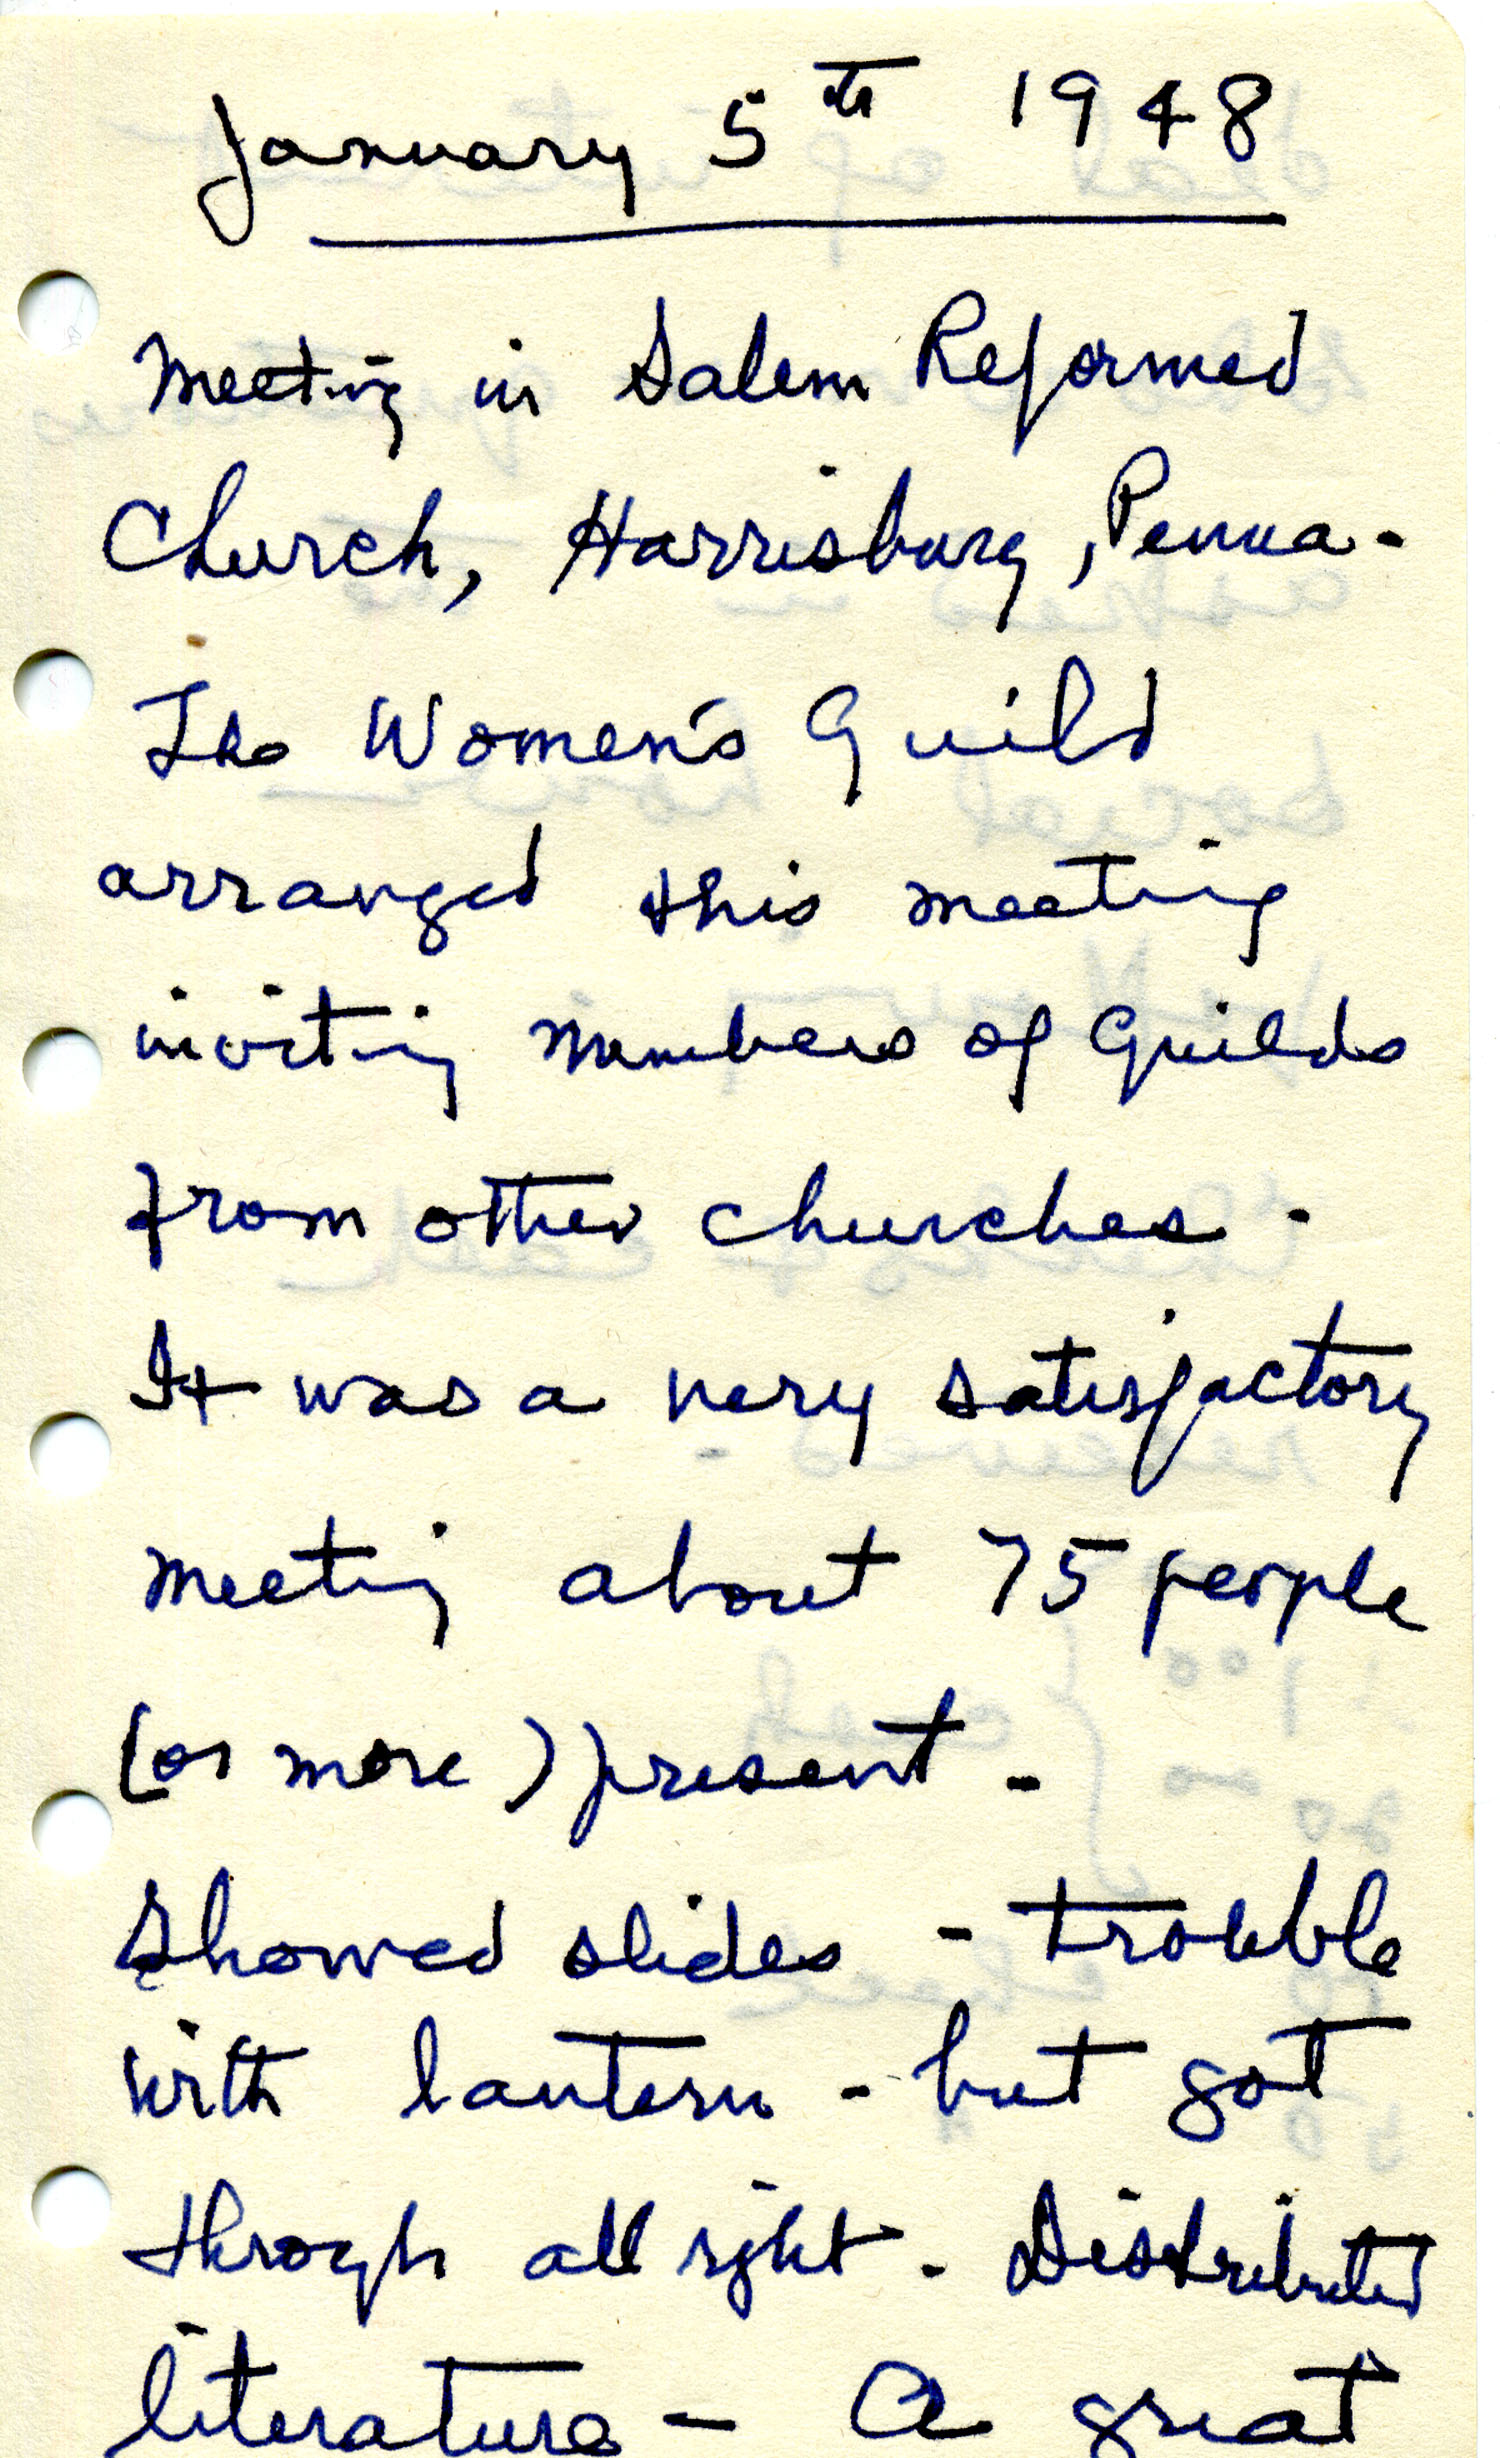 January 5th 1948
Meeting in Salem Reformed
Church, Harrisburg, Penna.
The Women's Guild
arranged this meeting
inviting members of Guilds
from other churches.
It was a very satisfactory
meeting about 75 people
(or more) present -
Showed slides - trouble
with lantern - but got
throgh all right. Distributed
literature - A great